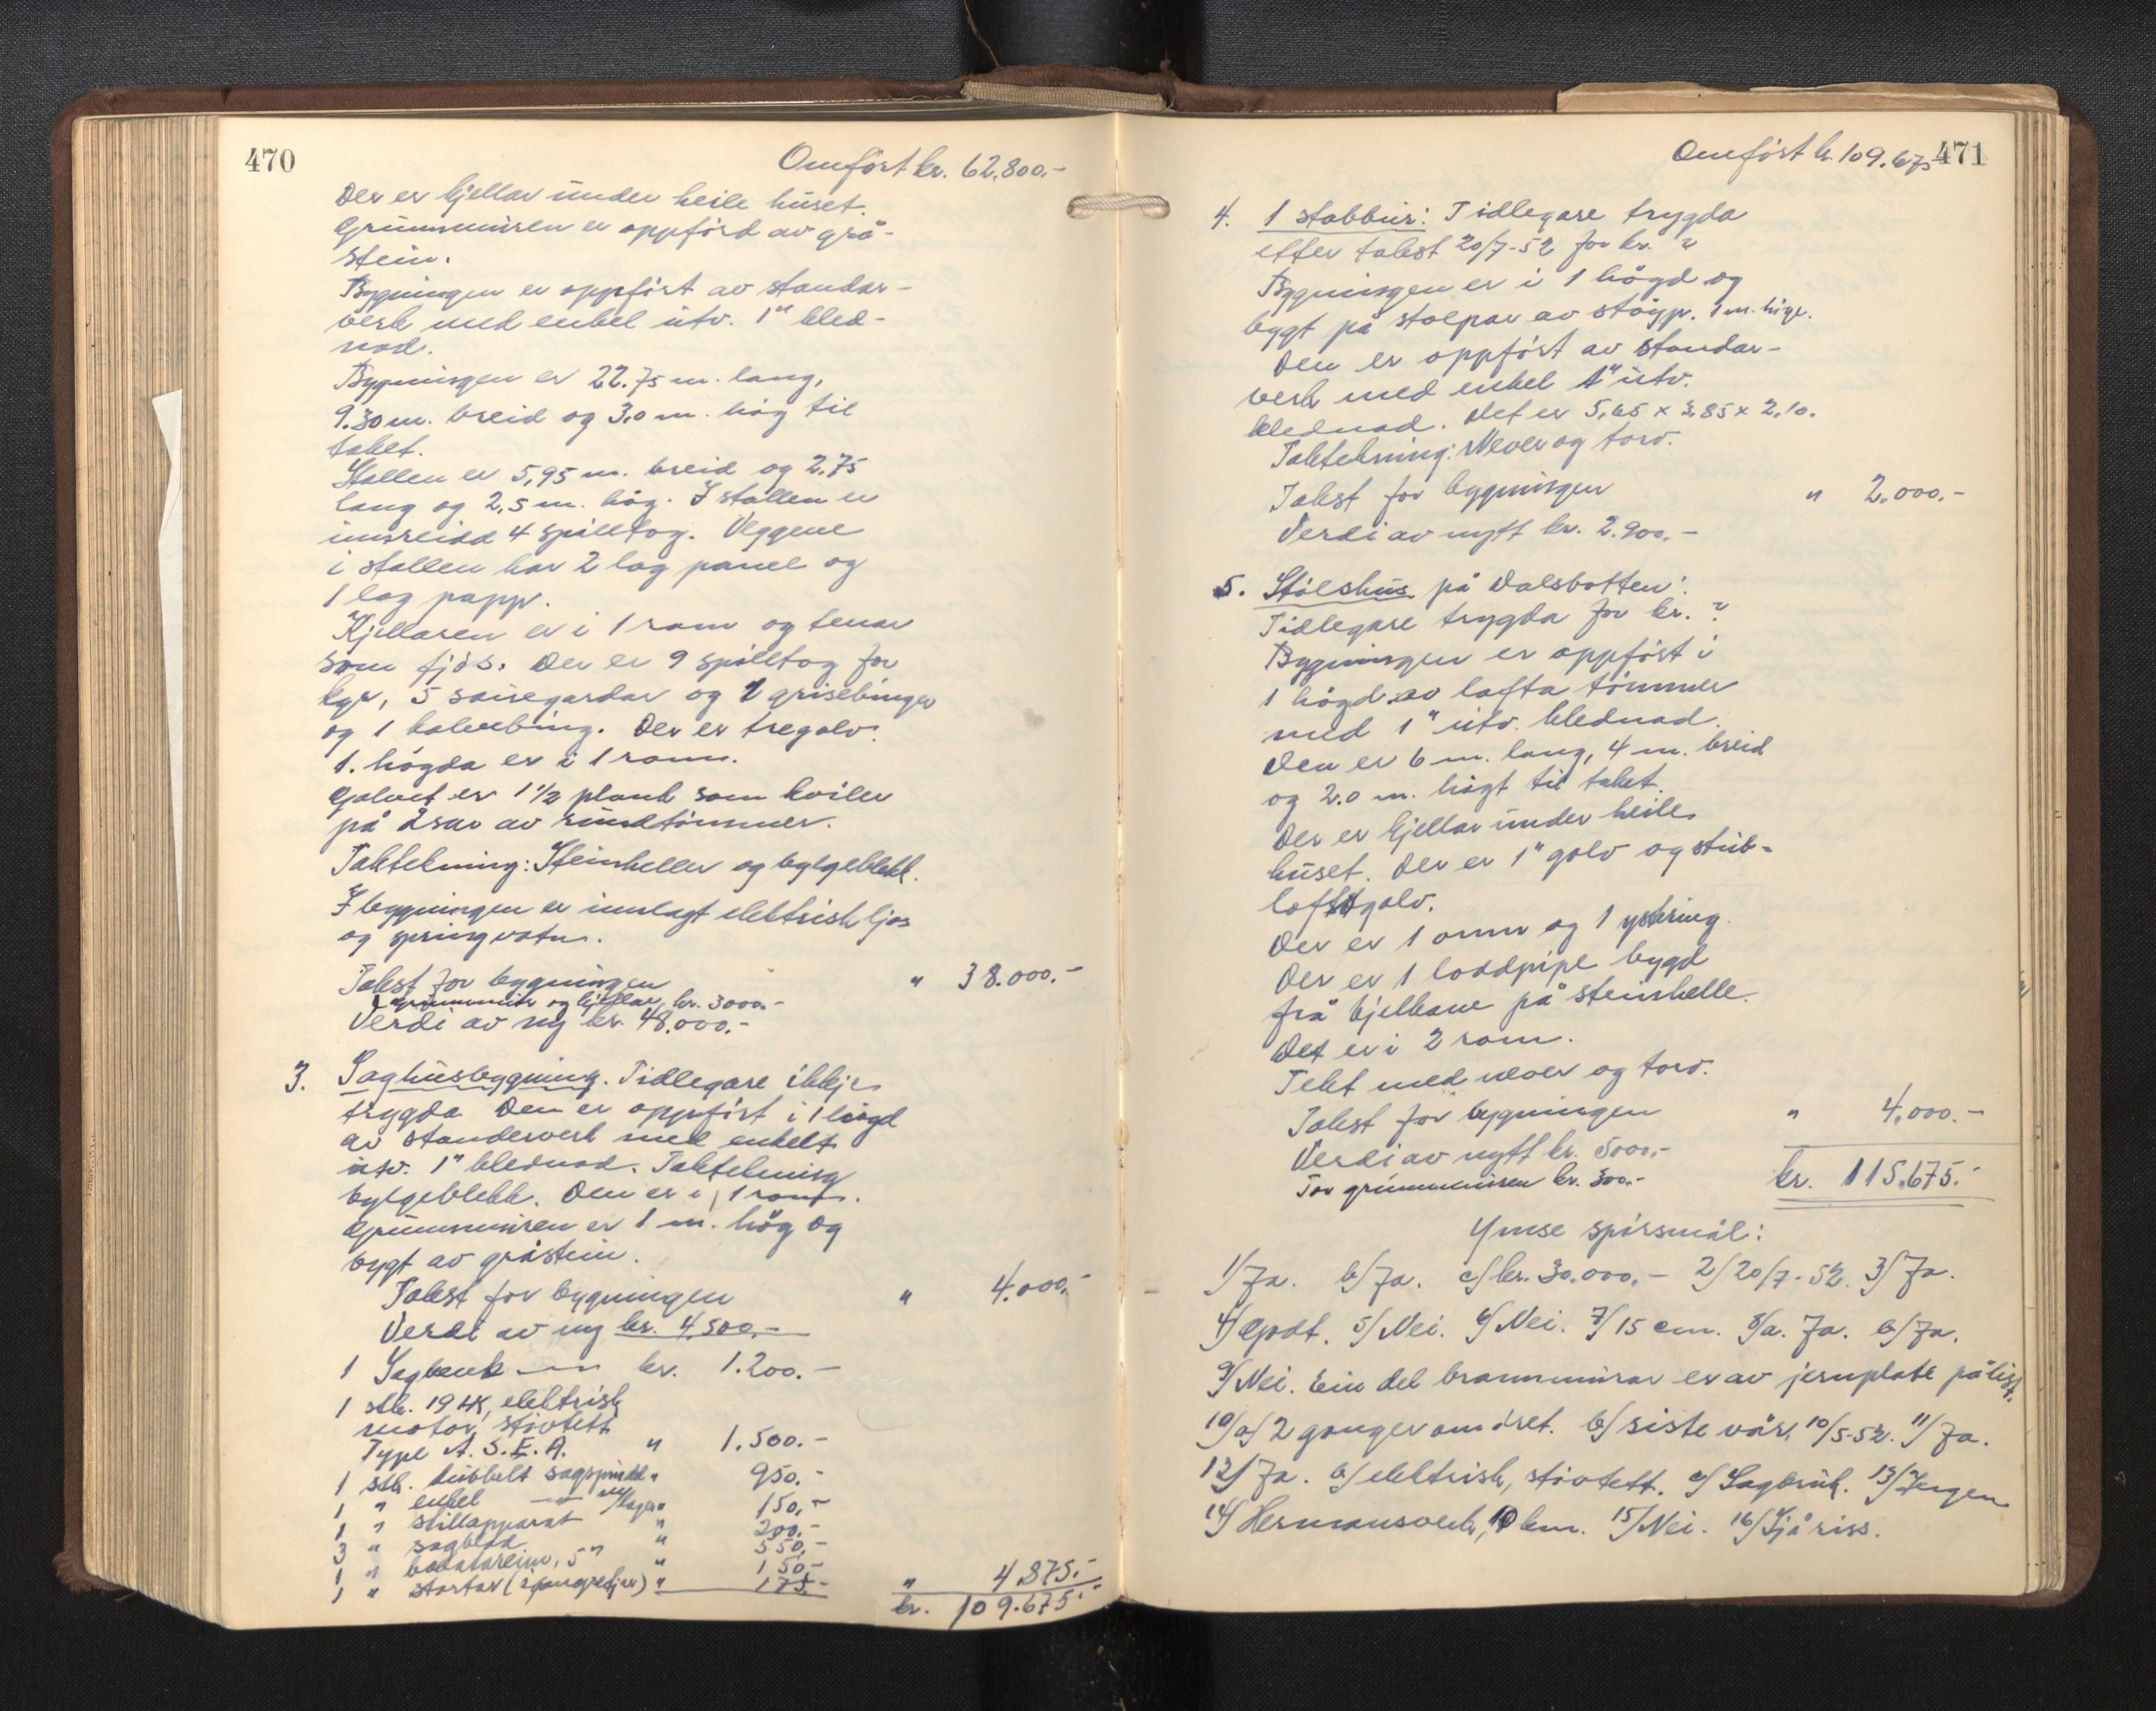 470
Omført kr. 62.800.-
Der er kjellar under heile huset.
Grunnmuren er oppførd av grå-
stein.
Bygningen er oppført av standar-
verk med enkel utv. 1" kled-
nad.
Bygningen er 22.75 m. lang,
9.30 m. breid og 3,0 m. høg til
taket.
Stallen er 5,95 m. breid og 2.75
lang og 2,5 m. høg. I stallen er
innreidd 4 spilltog. Veggene
i stallen har 2 lag panel og
1 lag papp.
Kjellaren er i 1 rom og tenar
som fjøs. Der er 9 spilltog for
kyr, 5 sauegardar og 2 grisebingar
og 1 kalvebing. Der er tregolv.
1. høgda er i 1 rom.
Golvet er 1 1/2 plank som kviler
på åsar av rundtømmer.
Taktekning: Steinheller og bylgeblekk.
I bygningen er innlagt elektrisk ljos
og springvatn.
Takst for bygningen " 38.000.-
grunnmur og kjellar, kr. 3000.-
Verdi av ny kr. 48.000.-
3. Saghusbygning. Tidlegare ikkje
trygda. Den er oppført i 1 høgd
av standerverk med enkelt
utv. 1" klednad. Taktekning
bylgeblekk. Den er i 1 rom.
Grunnmuren er 1 m. høg og
bygt av gråstein.
Takst for bygningen " 4.000.-
Verdi av ny kr. 4.500.-
1 Sagbenk kr. 1.200.-
1 stk. 19 HK, elektrisk
motor, støvtett
Type A. S. E. A. " 1.500.-
1 stk. dubbelt sagspindel " 950.-
1 " enkel m/lager " 150,-
1 " stillapparat " 200.-
3 " sagblad " 550,-
1 " 5" " 150,-
1 " startar " 175.- " 4.875.-
kr. 109.675.-
471
Omført kr. 109.675
4. 1 stabbur: Tidlegare trygda
etter takst 20/7-52 for kr. ?
Bygningen er i 1 høgd og
bygt på stolpar av støyp. 1 m. høge.
Den er oppført av standar-
verk med enkel 1" utv.
klednad. Det er 5,65 x 3,85 x 2,10.
Taktekning: Never og torv.
Takst for bygningen " 2.000.-
Verdi av nytt kr. 2.900.-
5. Stølshus på Dalsbotten:
Tidlegare trygda for kr. ?
Bygningen er oppført i
1 høgd av lafta tømmer
med 1" utv. klednad.
Den er 6 m. lang, 4 m. breid
og 2.0 m. høgt til taket.
Der er kjellar under heile
huset. Der er 1" golv og stub-
loftsgolv.
Der er 1 omn og 1 ystering.
Der er 1 loddpipe bygd
frå kjellaren på steinhelle.
Det er i 2 rom.
Tekt med never og torv.
Takst for bygningen " 4.000.-
Verdi av nytt kr. 5000.-
For grunnmuren kr. 300.- kr. 115.675.-
Ymse spørsmål:
1/ Ja. b/ Ja. c/ kr. 30.000.- 2/ 20/7-52. 3/ Ja.
4/ Godt. 5/ Nei. 6/ Nei. 7/ 15 cm. 8/a. Ja. b/ Ja.
9/ Nei. Ein del brannmurar er av jernplate på
10/ a/ 2 gonger om året. b/ siste vår, 10/5-52. 11/ Ja.
12/ Ja. b/ elektrisk, støvtett. c/ Sagbruk. 13/ Ingen
14/ Hermansverk, 10 km. 15/ Nei. 16/ Sjå riss.